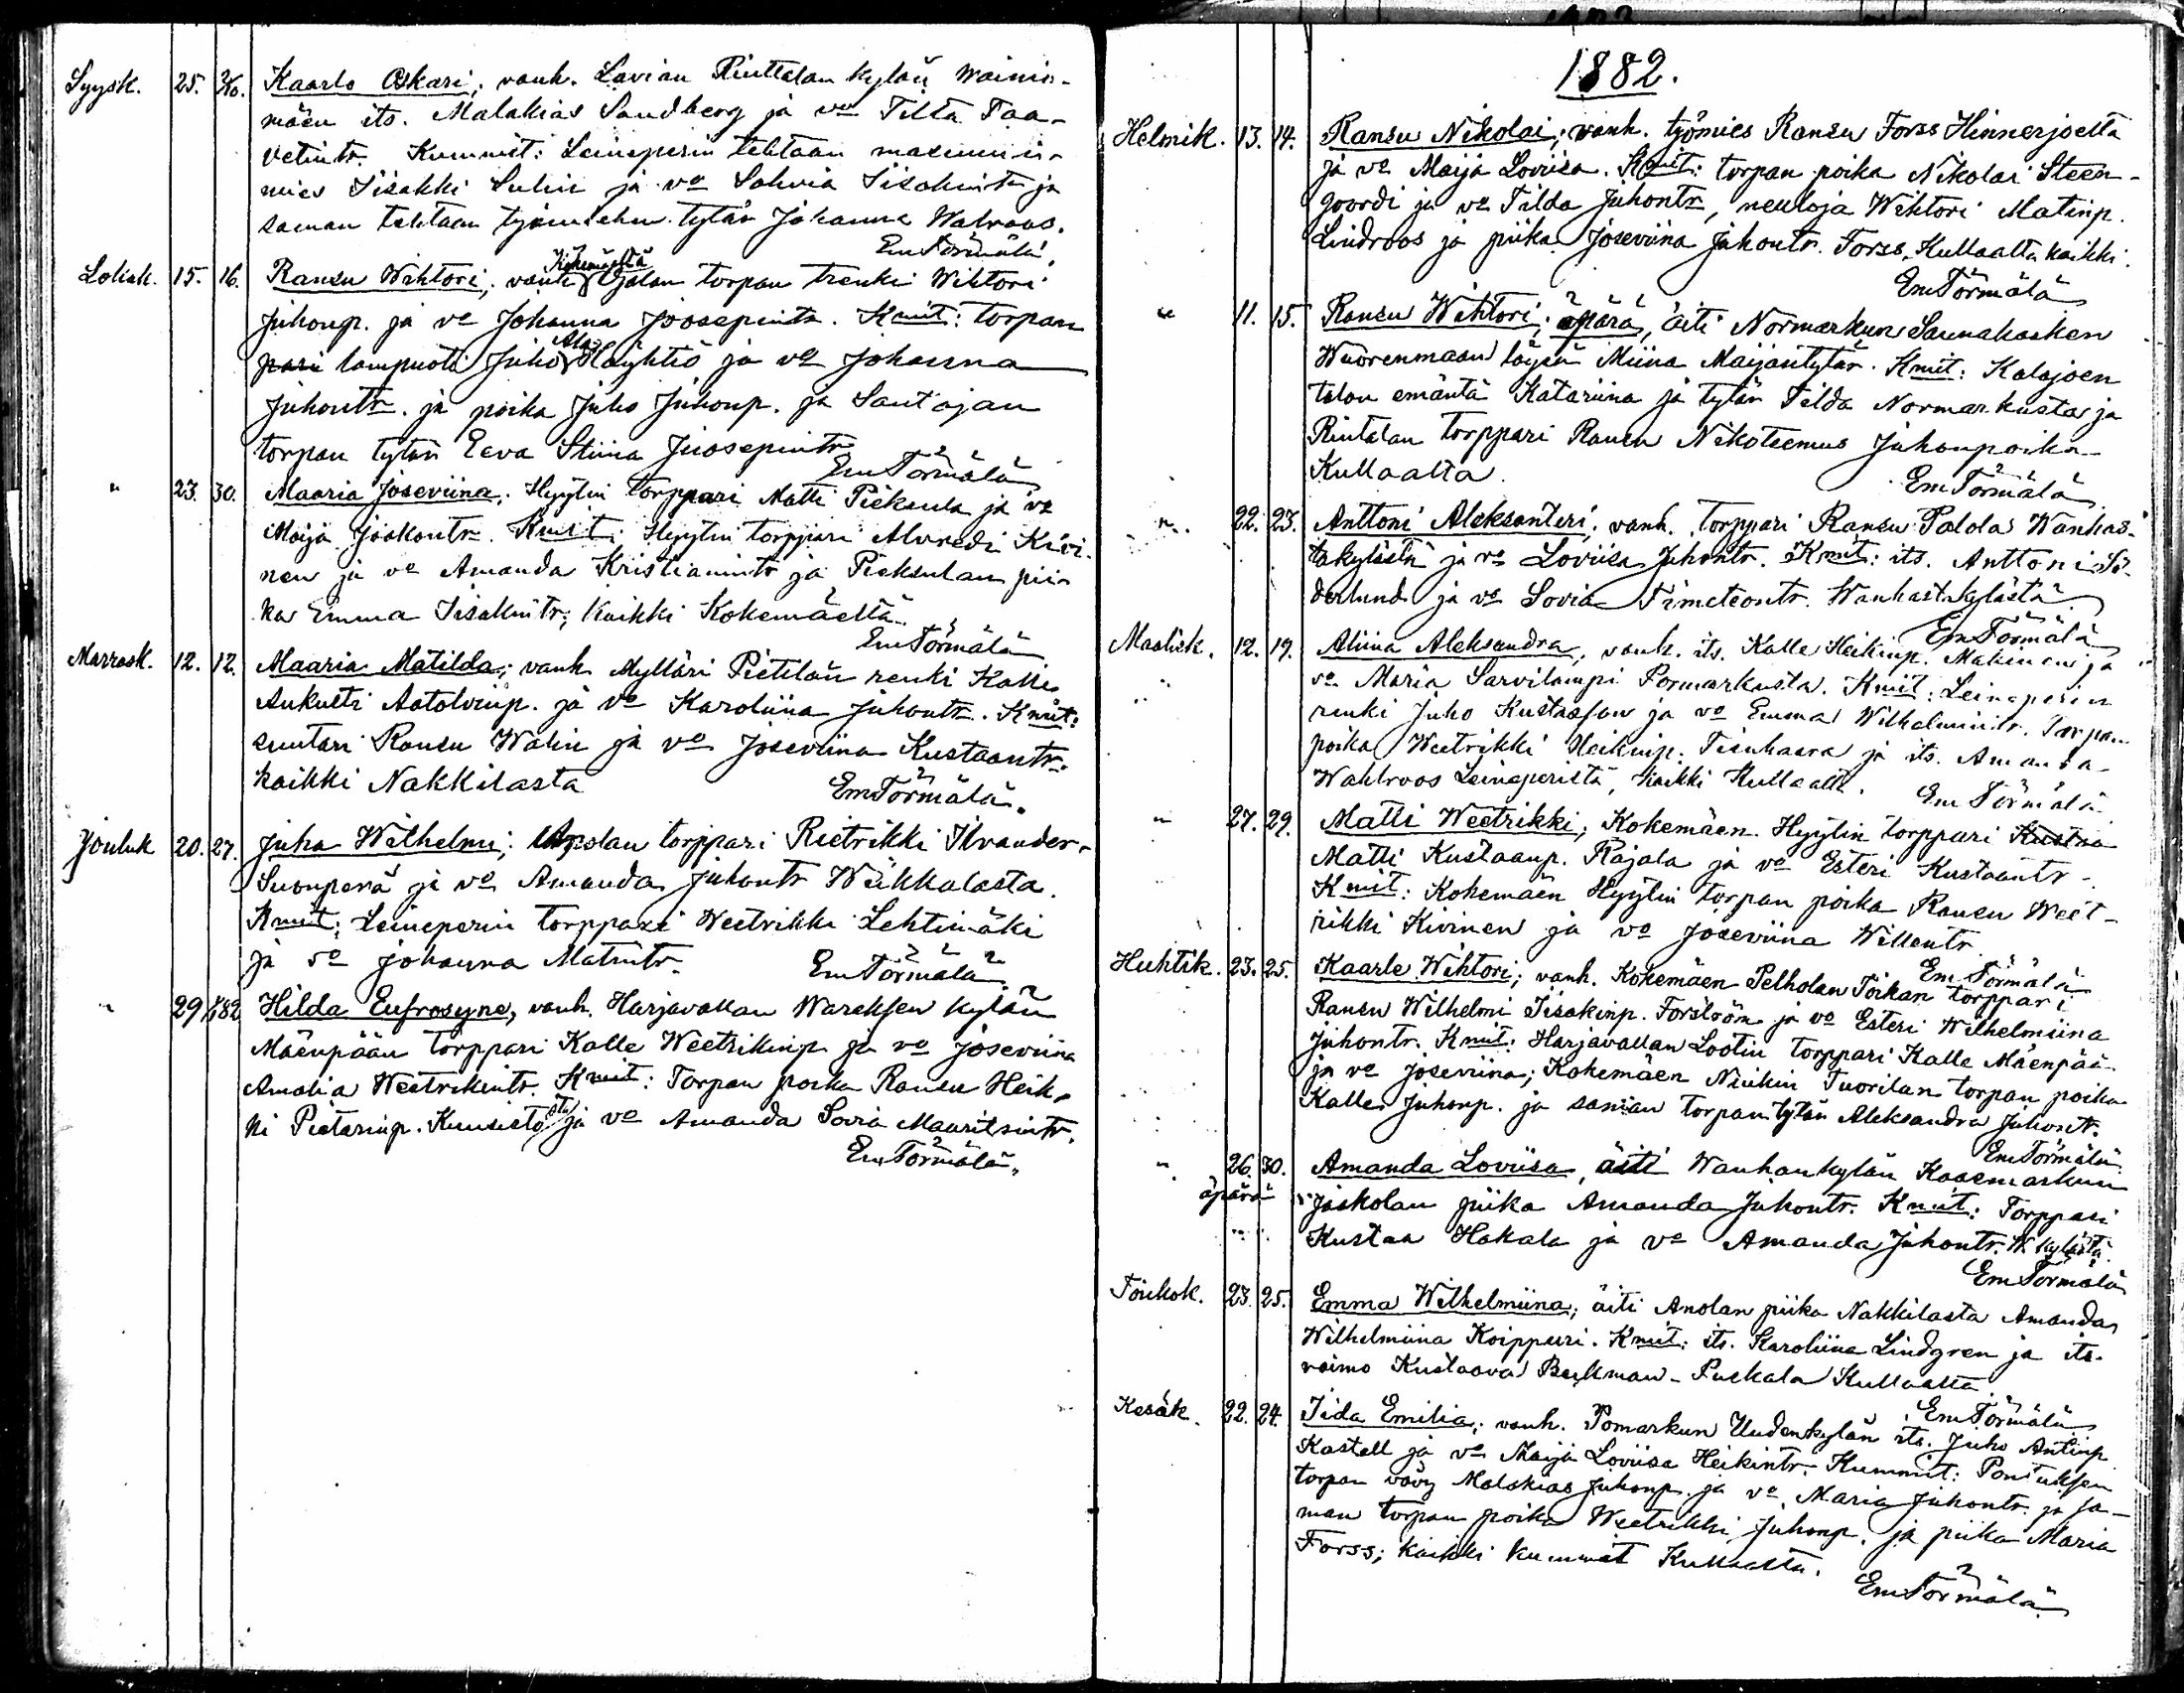 Syysk. 25. 2/10. Kaarlo Oskari; vanh. Lavian Riuttalan kylän Wainio-
mäen its. Malakias Sandberg ja vo Tilta Taa-
vetintr. Kummit: Leineperin tehtaan masuuni-
mies Iisakki Suhin ja vo Sohvia Iisakintr ja
saman tehtaan työmiehen tytär Johanna Walroos.
EmTörmälä.
Lokak. 15. 16. Ransu Wihtori; vanh. Kokemäeltä Ojalan torpan trenki Wihtori
Juhonp. ja vo Johanna Joosepintr. Kmit: torpan
pari lampuoti Juho Ala Häyhtiö ja vo Johanna
Juhontr. ja poika Juho Juhonp. ja Santajan
torpan tytär Eeva Stiina Joosepintr
EmTörmälä
" 23. 30. Maaria Joseviina; Hyytin torppari Matti Pieksula ja vo
Maija Jaakontr. Kmit: Hyytin torppari Alvredi Kivi-
nen ja vo Amanda Kristianintr ja Pieksulan pii-
ka Emma Iisakintr; kaikki Kokemäeltä.
EmTörmälä
Marrask. 12. 12. Maaria Matilda; vanh. Mylläri Pietilän renki Kalle
Aukusti Aatolvinp. ja vo Karoliina Juhontr. Kmit:
suutari Ransu Walin ja vo Joseviina Kustaantr.
kaikki Nakkilasta
EmTörmälä.
Jouluk 20. 27. Juha Wilhelmi; Anolan torppari Rietrikki Ilvander-
Suonperä ja vo Amanda Juhontr Wiikkalasta.
Kmit: Leineperin torppari Weetrikki Lehtimäki
ja vo Johanna Matintr.
EmTörmälä
" 29 1/1 82 Hilda Eufrosyne, vanh. Harjavallan Wareksen kylän
Mäenpään torppari Kalle Weetrikinp. ja vo Joseviina
Amalia Weetrikintr. Kmit: Torpan poika Ransu Heik-
ki Pietarinp. Kuusisto sta ja vo Amanda Sovia Mauritsintr.
EmTörmälä.
1882.
Helmik. 13. 14. Ransu Nikolai; vanh. työmies Ransu Forss Hinnerjoelta
ja vo Maija Loviisa. Kmit: torpan poika Nikolai Steen-
goordi ja vo Tilda Juhontr, neuloja Wihtori Matinp.
Lindroos ja piika Joseviina Juhontr. Forss, Kullaalta kaikki.
EmTörmälä
" 11. 15. Ransu Wihtori; äpärä, äiti Normarkun Saunakosken
Wuorenmaan löysä Miina Maijantytär. Kmit: Kalajoen
talon emäntä Katariina ja tytär Tilda Normarkusta ja
Rintalan torppari Ransu Nikoteemus Juhonpoika
Kullaalta.
EmTörmälä
" 22. 23. Anttoni Aleksanteri; vanh. torppari Ransu Palola Wanhas-
takylästä ja vo Loviisa Juhontr. Kmit: its. Anttoni Sö-
derlund ja vo Sovia Timeteontr. Wanhastakylästä
EmTörmälä
Maalisk. 12. 19. Aliina Aleksandra, vanh. its. Kalle Heikinp. Makinen ja
vo Maria Sarvilampi Pormarkusta. Kmit: Leineperin
renki Juho Kustasson ja vo Emma Wilhelmiinatr. Torpan
poika Weetrikki Heikinp. Tienhaara ja its. Amanda
Wahlroos Leineperistä, kaikki Kullaalta.
EmTörmälä
" 27. 29. Matti Weetrikki; Kokemäen Hyytin torppari Kustaa
Matti Kustaanp. Rajala ja vo Esteri Kustaantr.
Kmit: Kokemäen Hyytin torpan poika Ransu Weet-
rikki Kivinen ja vo Joseviina Willentr
EmTörmälä
Huhtik. 23. 25. Kaarle Wihtori; vanh. Kokemäen Pelholan Toikan torppari
Ransu Wilhelmi Iisakinp. Forsloöm ja vo Esteri Wilhelmiina
Juhontr. Kmit: Harjavallan Lootin torppari Kalle Mäenpää
ja vo Joseviina; Kokemäen Niukin Tuorilan torpan poika
Kalle Juhonp. ja saman torpan tytär Aleksandra Juhontr.
EmTörmälä.
" 26. 30. Amanda Loviisa, äiti Wanhankylän Kaasmarkun
äpärä Jaskolan piika Amanda Juhontr. Kmit: Torppari
Kustaa Hakala ja vo Amanda Juhontr. W. kylästä.
EmTörmälä
Toukok. 23. 25. Emma Wilhelmiina; äiti Anolan piika Nakkilasta Amanda
Wilhelmiina Koippuri. Kmit: its. Karoliina Lindgren ja its.
vaimo Kustaava Backman-Puskala Kullaalta.
EmTörmälä
Kesäk. 22. 24. Iida Emilia; vanh. Pomarkun Uudenkylän its. Juho Antinp
Kastell ja vo Maija Loviisa Heikintr. Kummit: Pontuksen
torpan vävy Malakias Juhonp. ja vo Maria Juhontr. ja sa-
man torpan poika Weetrikki Juhonp. ja piika Maria
Forss; kaikki kummit Kullaalta.
EmTörmälä